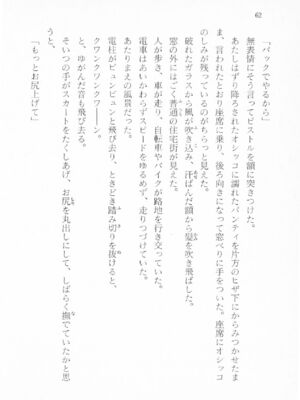 62
「バックでやるから」
無表情にそう言ってピストルを額に突きつけた。
あたしはずり降ろされたオシッコに濡れたパンティを片方のヒザ下にからみつかせたま
ま、言われたとおり座席に乗り、後ろ向きになって窓べりに手をついた。座席にオシッコ
のしみが残っているのがちらっと見えた。
破れたガラスから風が吹き込み、汗ばんだ額から髪を吹き飛ばした。
窓の外にはごく普通の住宅街が見えた。
人が歩き、車が走り、自転車やバイクが路地を行き交っていた。
電車はあいかわらずスピードをゆるめず、走りつづけていた。
あたりまえの風景だった。
電柱がビュンビュンと飛び去り、ときどき踏み切りを抜けると、
クワンクワンクワーーン。
と、ゆがんだ音も飛び去る。
そいつの手がスカートをたくしあげ、お尻を丸出しにして、しばらく撫でていたかと思
うと、
「もっとお尻上げて」